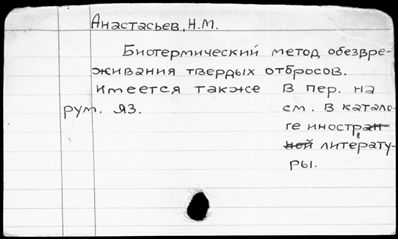 Анастасьев, Н.М.
Биотермический метод обезвре-
живания твердых отбросов.
Имеется также в пер. на
рум. яз. см. в катало-
ге иностран-
ной литерату-
ры.